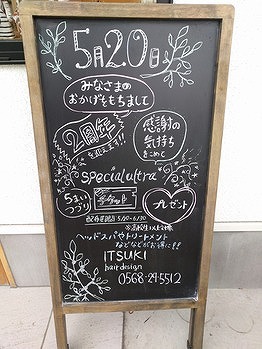 5月20日
みなさまの
おかげをもちまして
2周年
をむかえます!!
感謝の
気持ち
をこめて
special ultra
5まい
つづり
プレゼント
配布期間 5/10~6/30
ヘッドスパやトリートメント
などなどがお得に!!
ITSUKI
hair design
0568-29-5512